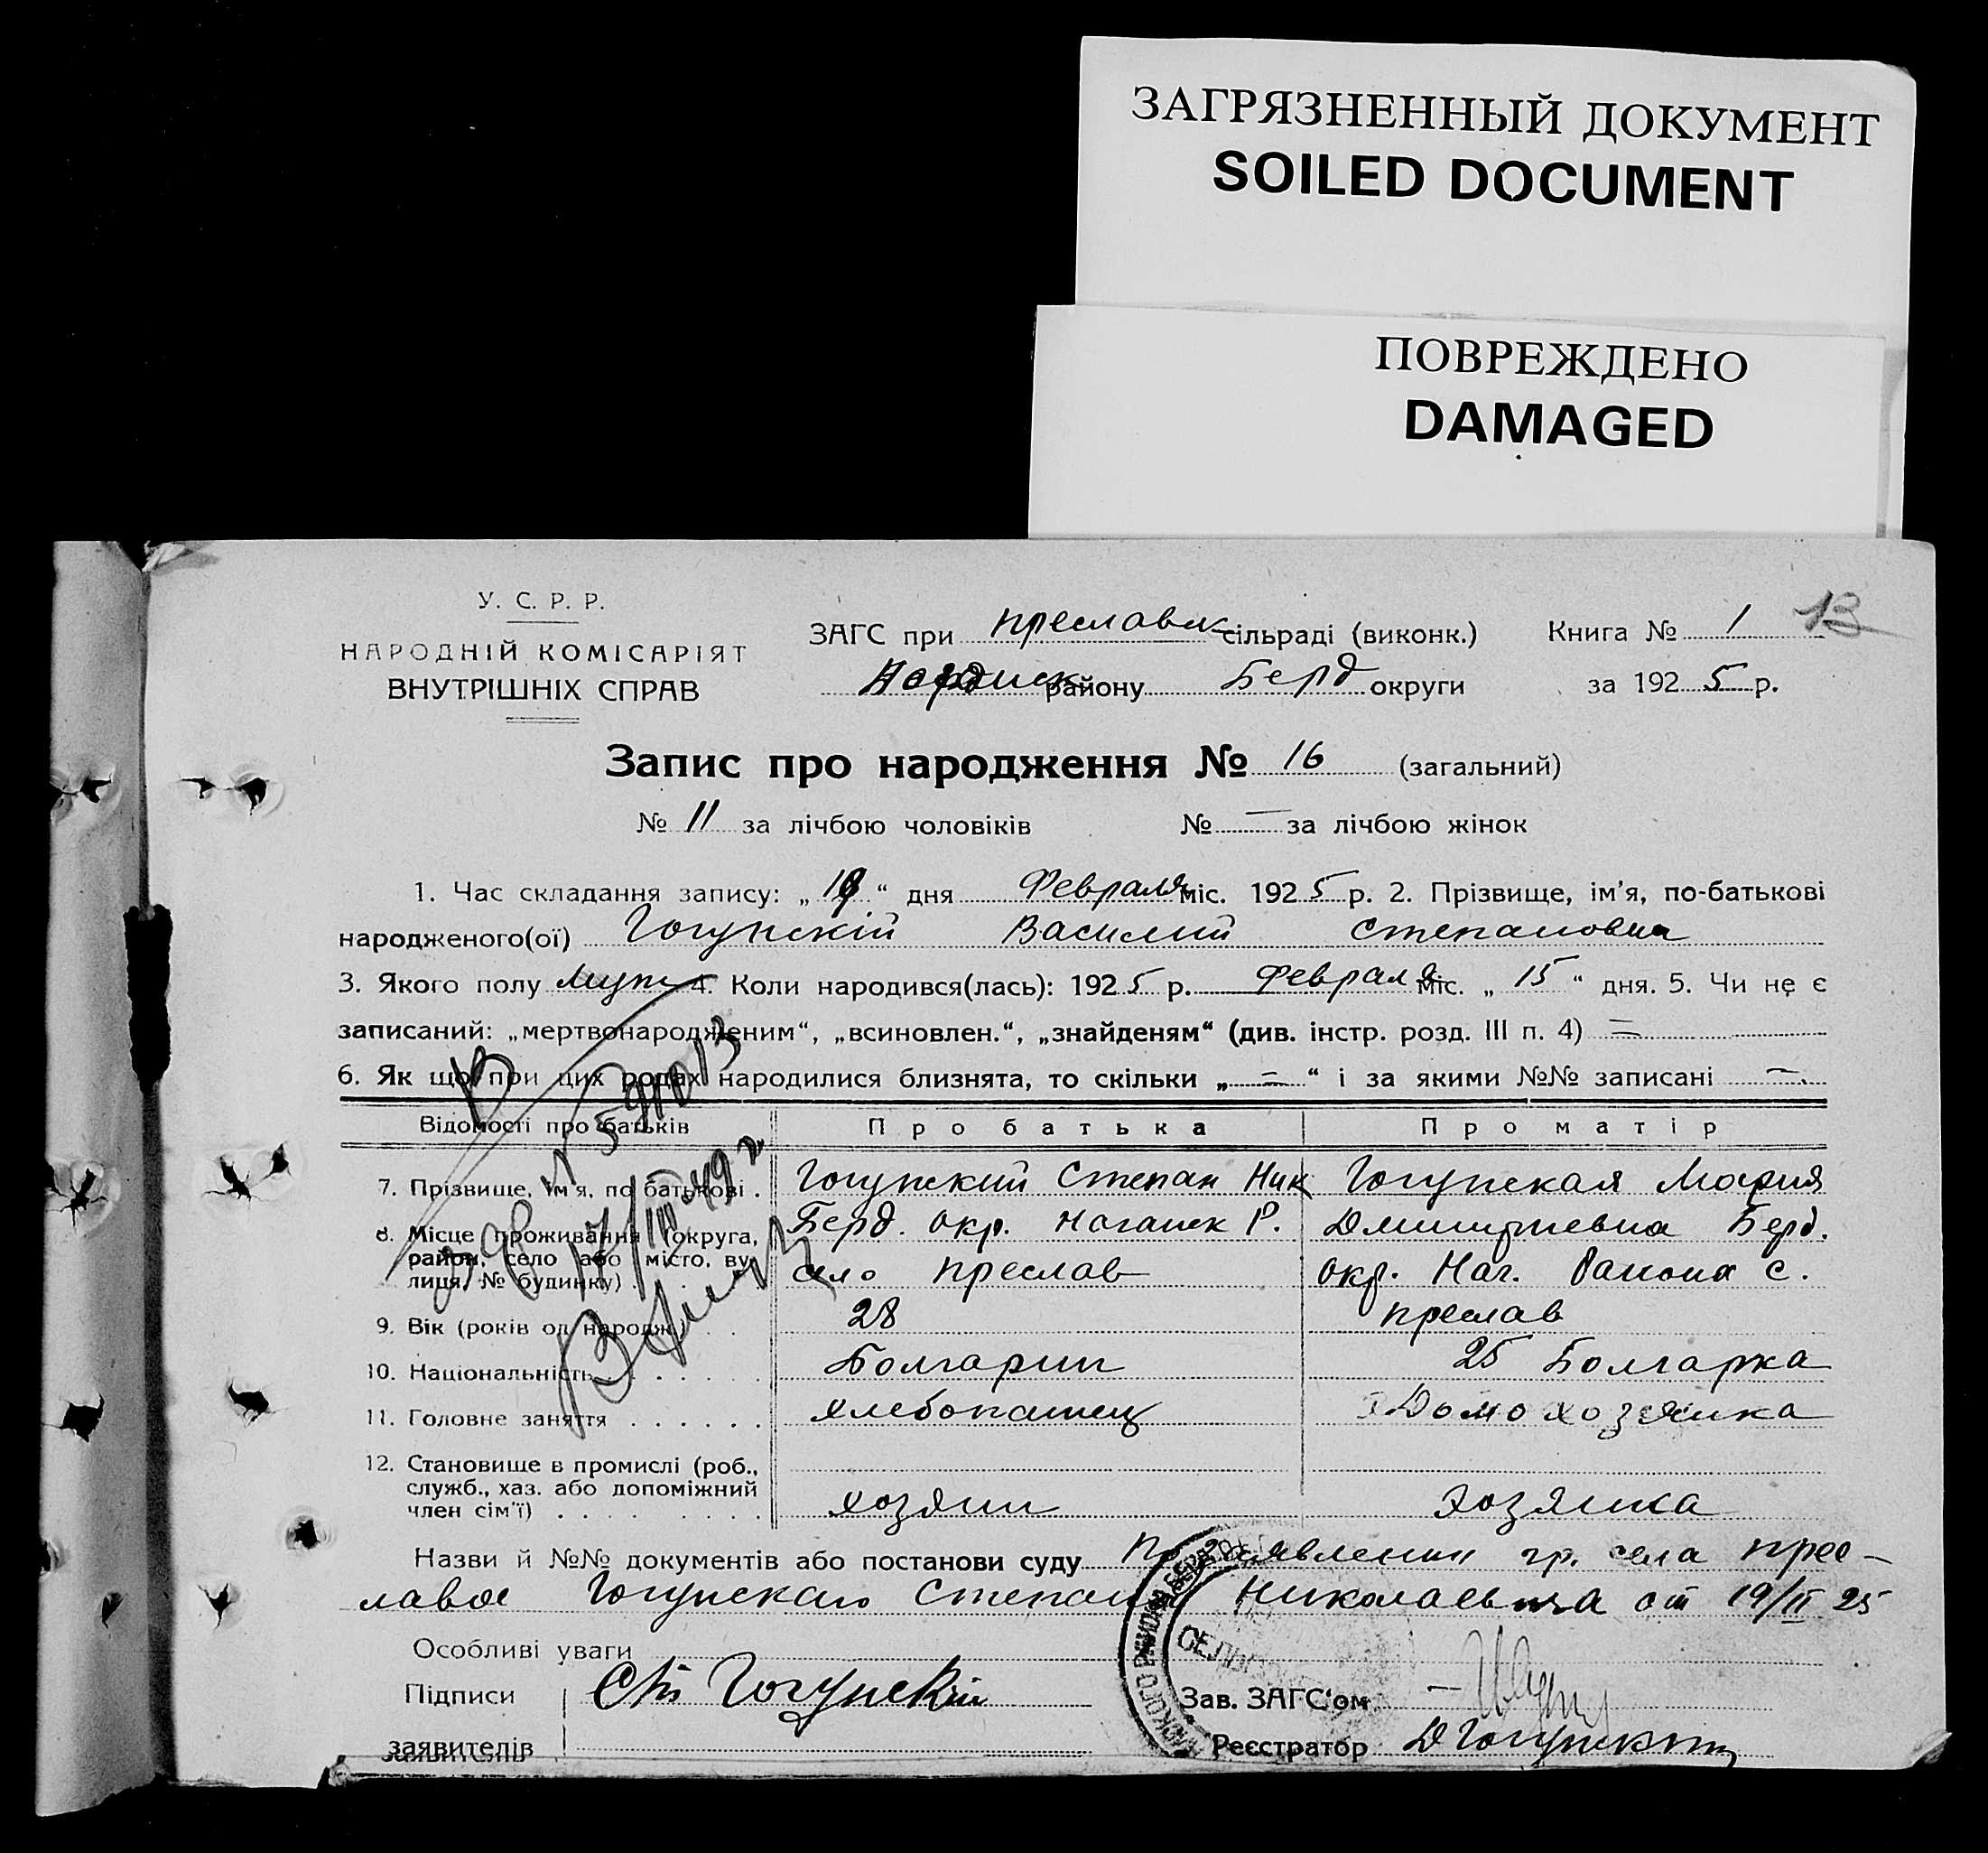 ЗАГРЯЗНЕННЫЙ ДОКУМЕНТ
SOILED DOCUMENT
ПОВРЕЖДЕНО
DAMAGED
У. С. Р. Р.
НАРОДНІЙ КОМІСАРІЯТ
ВНУТРІШНІХ СПРАВ
ЗАГС при преславск сільраді (виконк.) Книга № 1 13
району Берд округи за 1925 р.
Запис про народження № 16 (загальний)
№ 11 за лічбою чоловіків № — за лічбою жінок
1. Час складання запису: „19“ дня Февраля міс. 1925 р. 2. Прізвище, ім'я, по-батькові
народженого(ої) Гогунский Василий Степанович
3. Якого полу муж 4. Коли народився(лась): 1925 р. Февраля міс. „15“ дня. 5. Чи не є
записаний: „мертвонародженим“, „всиновлен.“, „знайденям“ (див. інстр. розд. III п. 4) =
6. Як що при цих родах народилися близнята, то скільки „=“ і за якими №№ записані —.
Відомості про батьків Про батька Про матір
7. Прізвище, ім'я, по батькові . Гогунский Степан Ник Гогунская Мария
8. Місце проживання (округа, район, село або місто, вулиця, № будинку) Берд. окр. Ногайск р. Дмитриевна Берд.
село преслав окр. Ног. района с.
9. Вік (років од народж.) . . 28 преслав
10. Національність . . . . . . Болгарин 25 Болгарка
11. Головне заняття . . . . . . хлебопашец Домохозяйка
12. Становище в промислі (роб.,
служб., хаз. або допоміжний
член сім'ї) . . . . . . . . хозяин хозяйка
Назви й №№ документів або постанови суду по заявлении гр. села прес-
лавое Гогунскаго Степана Николаевича от 19/II 25
Особливі уваги
Підписи Ст Гогунский Зав. ЗАГС'ом
заявителів Реєстратор ДГогунский